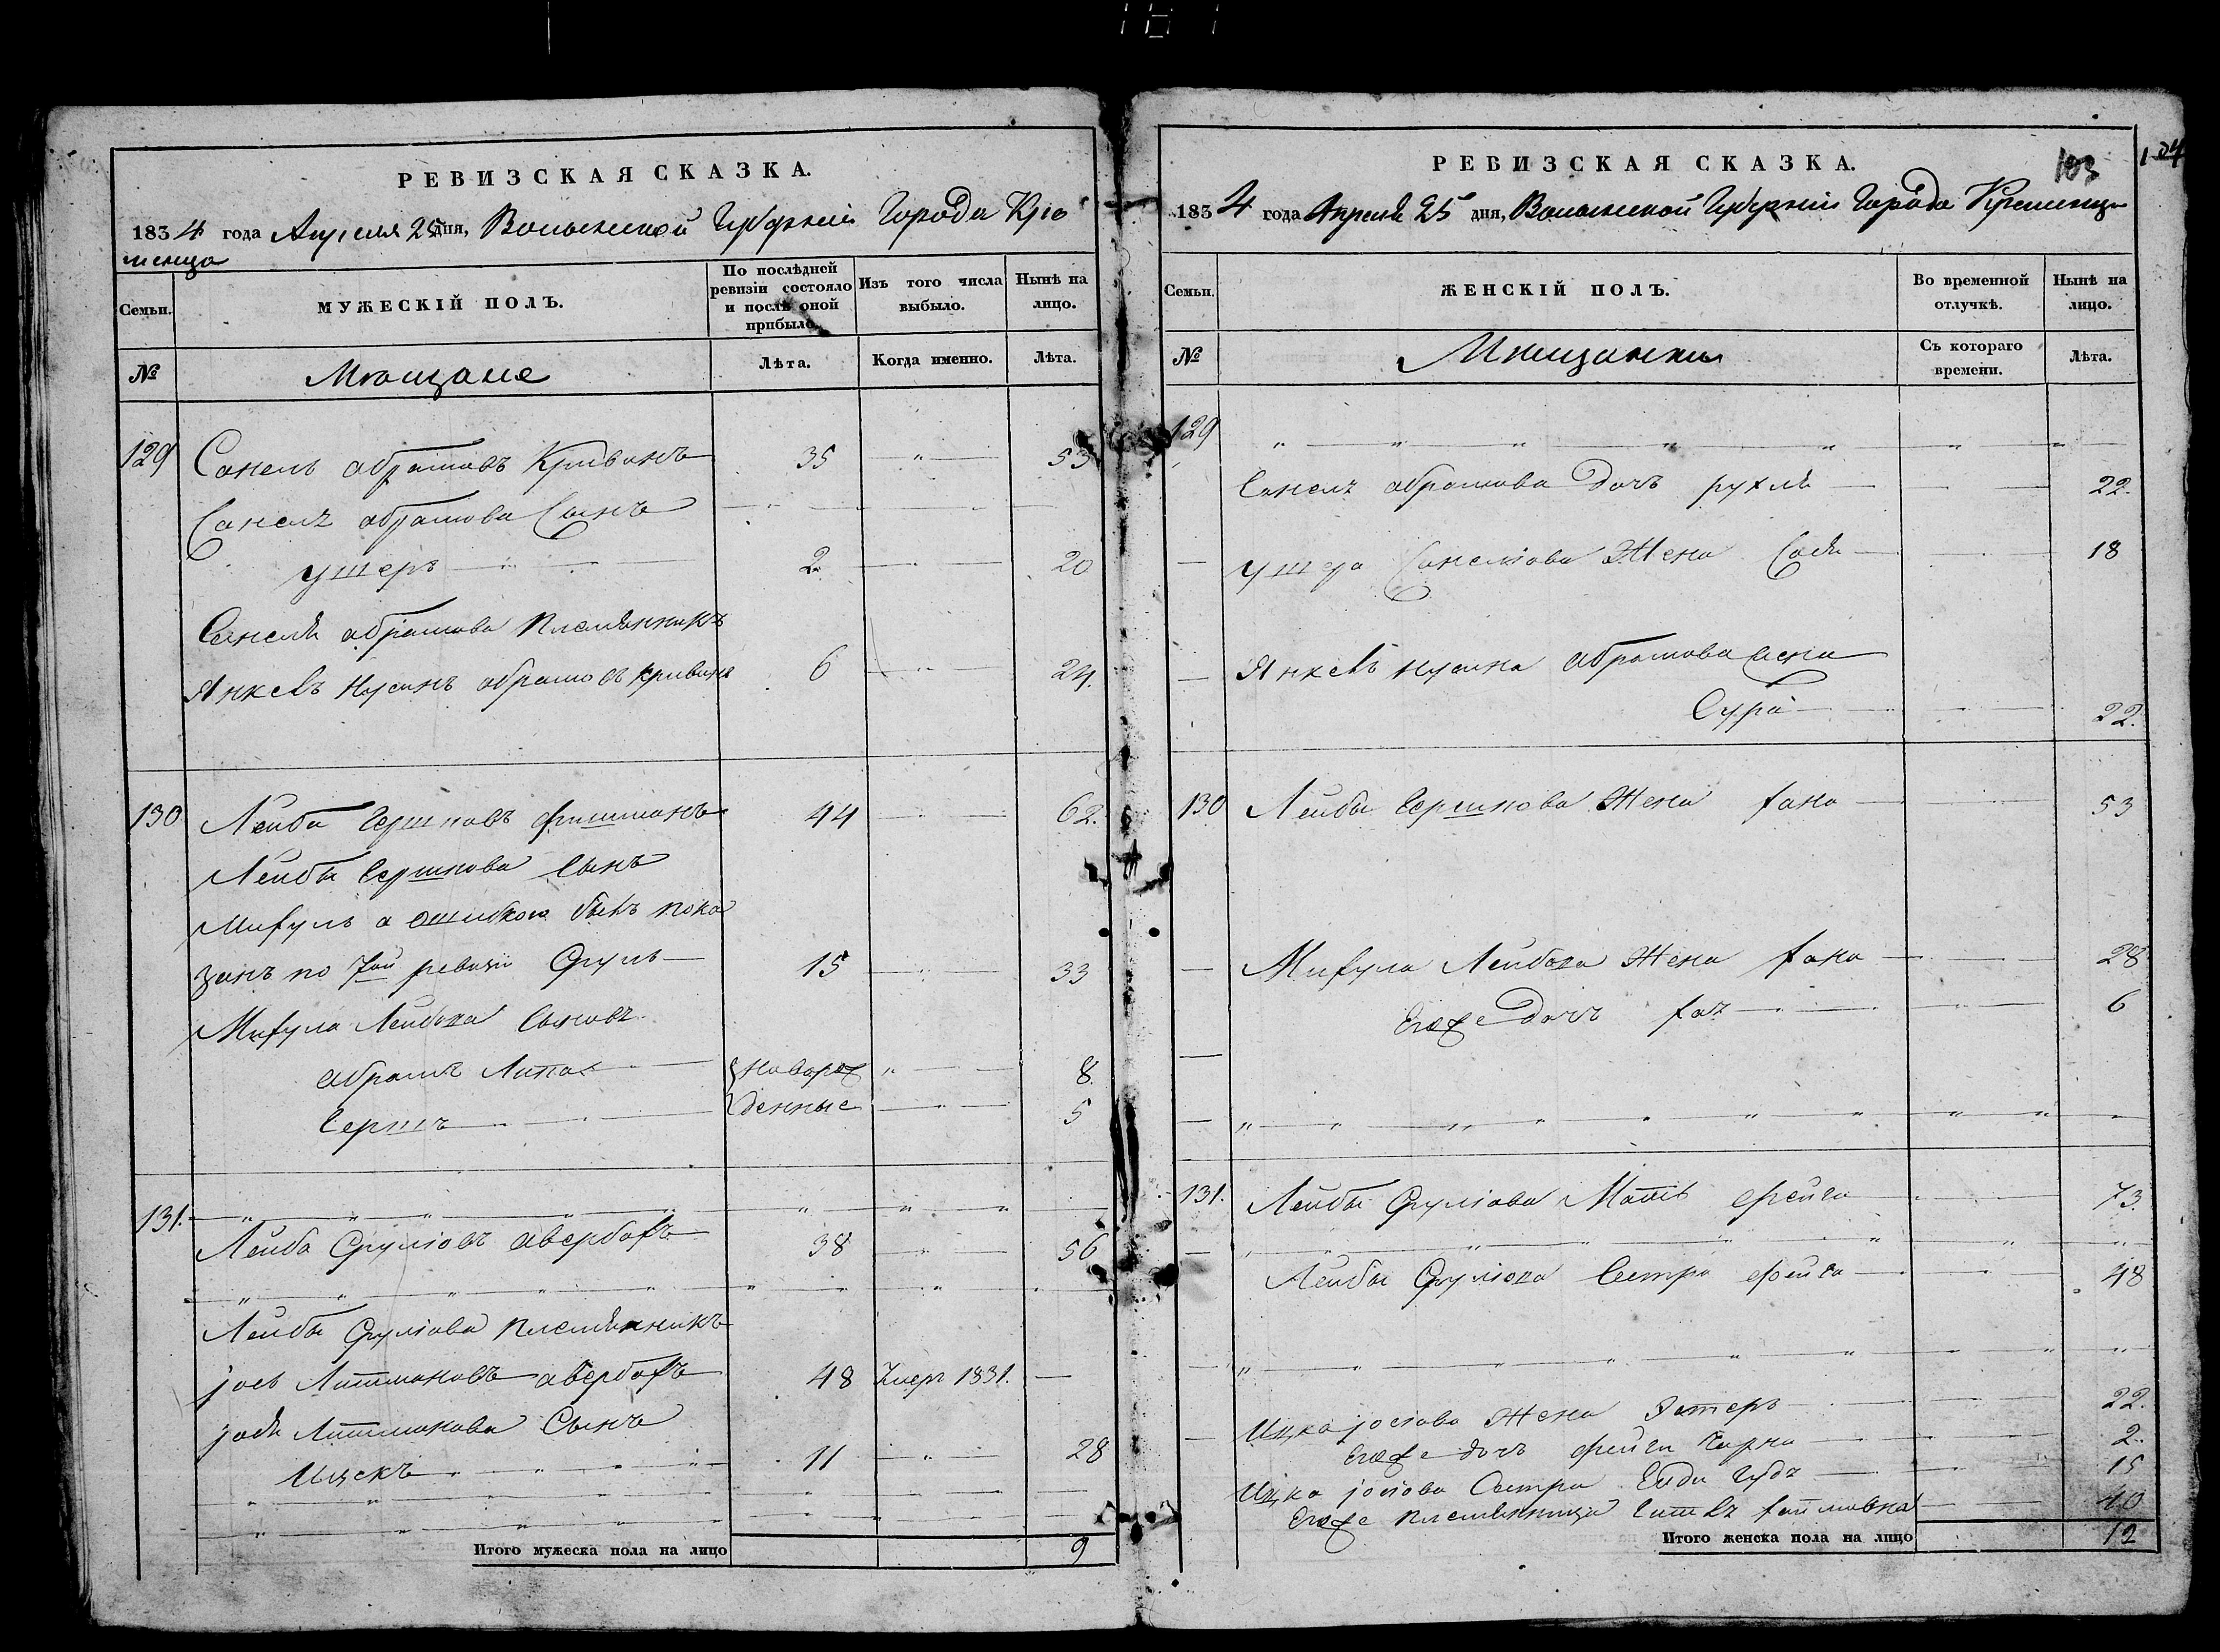 РЕВИЗСКАЯ СКАЗКА.
1834 года Апреля 25 дня, Волынской Губернии Города Кре
менца
Семьи. МУЖЕСКІЙ ПОЛЪ. По послѣдней ревизіи состояло и послѣ оной прибыло. Изъ того числа выбыло. Нынѣ на лицо.
№ Мѣщане Лѣта. Когда именно. Лѣта.
129 Санель абрамовъ Кривинъ 35 " 53
Санелъ абрамова Сынъ
ушеръ 2 20
Санеля абрамова племянникъ
Янкель Нусинъ абрамовъ кривинъ 6 " 24.
130 Лейба Гершковъ фишманъ 44 62.
Лейбы Гершкова Сынъ
Михуль а ошибкою былъ пока
занъ по 7ой ревизіи Сруль 15 33
Михула Лейбова Сыновъ
абрамъ Липа {новорож " 8.
Гершъ денные 5
131. " " " " " " " "
Лейба Срулiовъ авербахъ 38 " 56
" " " " " " " "
Лейбы Срулiова племянникъ
jось Литмановъ авербахъ 48 Умеръ 1831. —
jося Литманова Сынъ
Ицекъ 11 " 28
" " " " "
" " " " "
Итого мужеска пола на лицо 9
РЕВИЗСКАЯ СКАЗКА. 103 104
1834 года Апреля 25 дня, Волынской Губерніи Города Кременца
Семьи. ЖЕНСКІЙ ПОЛЪ. Во временной отлучкѣ. Нынѣ на лицо.
№ Мѣщанки Съ котораго времени. Лѣта.
129 " " " " " " "
Санелъ абрамова дочь рухля 22.
— ушера Санелiова Жена Сося 18
— Янкель Нусина абрамова жена
Сура 22.
130 Лейбы Гершкова Жена хана 53
— Михула Лейбова Жена хана 28
Егоже дочь 6
—
— " " " " " " " " "
131. Лейбы Срулiова Мать фейга 73.
— " " " " " " "
Лейбы Срулiова Сестра фейга 48
— " " " " " " "
— Ицка jосiова Жена Эстеръ 22.
Егоже дочь фейга Чарна 2.
Ицка jосiова Сестра 15
Егоже племянница 40
Итого женска пола на лицо 12